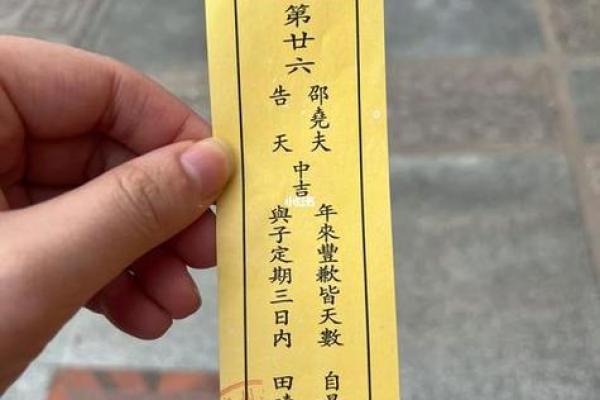 第廿六
邵堯夫
告天
中吉
年來豐歉皆天數 自
與子定期三日內 田
小红书